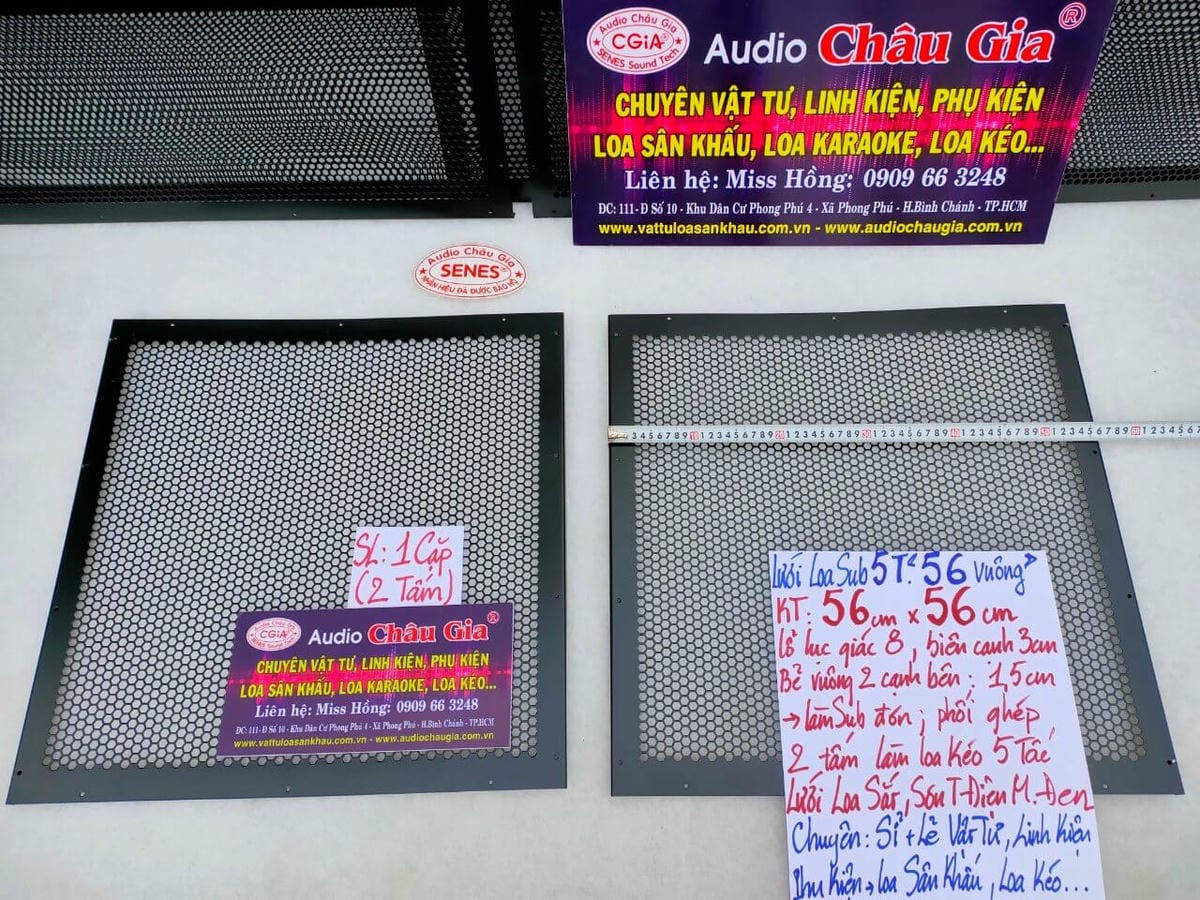 Audio Châu Gia
CGiA®
SENES Sound Tech
Audio Châu Gia®
CHUYÊN VẬT TƯ, LINH KIỆN, PHỤ KIỆN
LOA SÂN KHẤU, LOA KARAOKE, LOA KÉO...
Liên hệ: Miss Hồng: 0909 66 3248
ĐC: 111-Đ Số 10 - Khu Dân Cư Phong Phú 4 - Xã Phong Phú - H.Bình Chánh - TP.HCM
www.vattuloasankhau.com.vn - www.audiochaugia.com.vn
Audio Châu Gia
SENES®
NHÃN HIỆU ĐÃ ĐƯỢC BẢO HỘ
3 4 5 6 7 8 9 10 1 2 3 4 5 6 7 8 9 20 1 2 3 4 5 6 7 8 9 30 1 2 3 4 5 6 7 8 9 40 1 2 3 4 5 6 7 8 9 50 1 2 3 4 5 6 7 8 9 60 1 2 3 4 5 6
SL: 1 Cặp
(2 Tấm)
CGiA®
Audio Châu Gia®
CHUYÊN VẬT TƯ, LINH KIỆN, PHỤ KIỆN
LOA SÂN KHẤU, LOA KARAOKE, LOA KÉO...
Liên hệ: Miss Hồng: 0909 66 3248
ĐC: 111-Đ Số 10 - Khu Dân Cư Phong Phú 4 - Xã Phong Phú - H.Bình Chánh - TP.HCM
www.vattuloasankhau.com.vn - www.audiochaugia.com.vn
Lưới Loa Sub 5 Tấc 56 Vuông
KT: 56 cm x 56 cm
lổ lục giác 8, biên cạnh 3cm
Bẻ vuông 2 cạnh bên: 1,5cm
→ làm Sub đơn; phối ghép
2 tấm làm loa Kéo 5 Tấc
Lưới Loa Sắt, Sơn T-Điện M.Đen
Chuyên: Sỉ + Lẻ Vật Tư, Linh Kiện
Phụ Kiện → loa Sân Khấu, Loa Kéo...